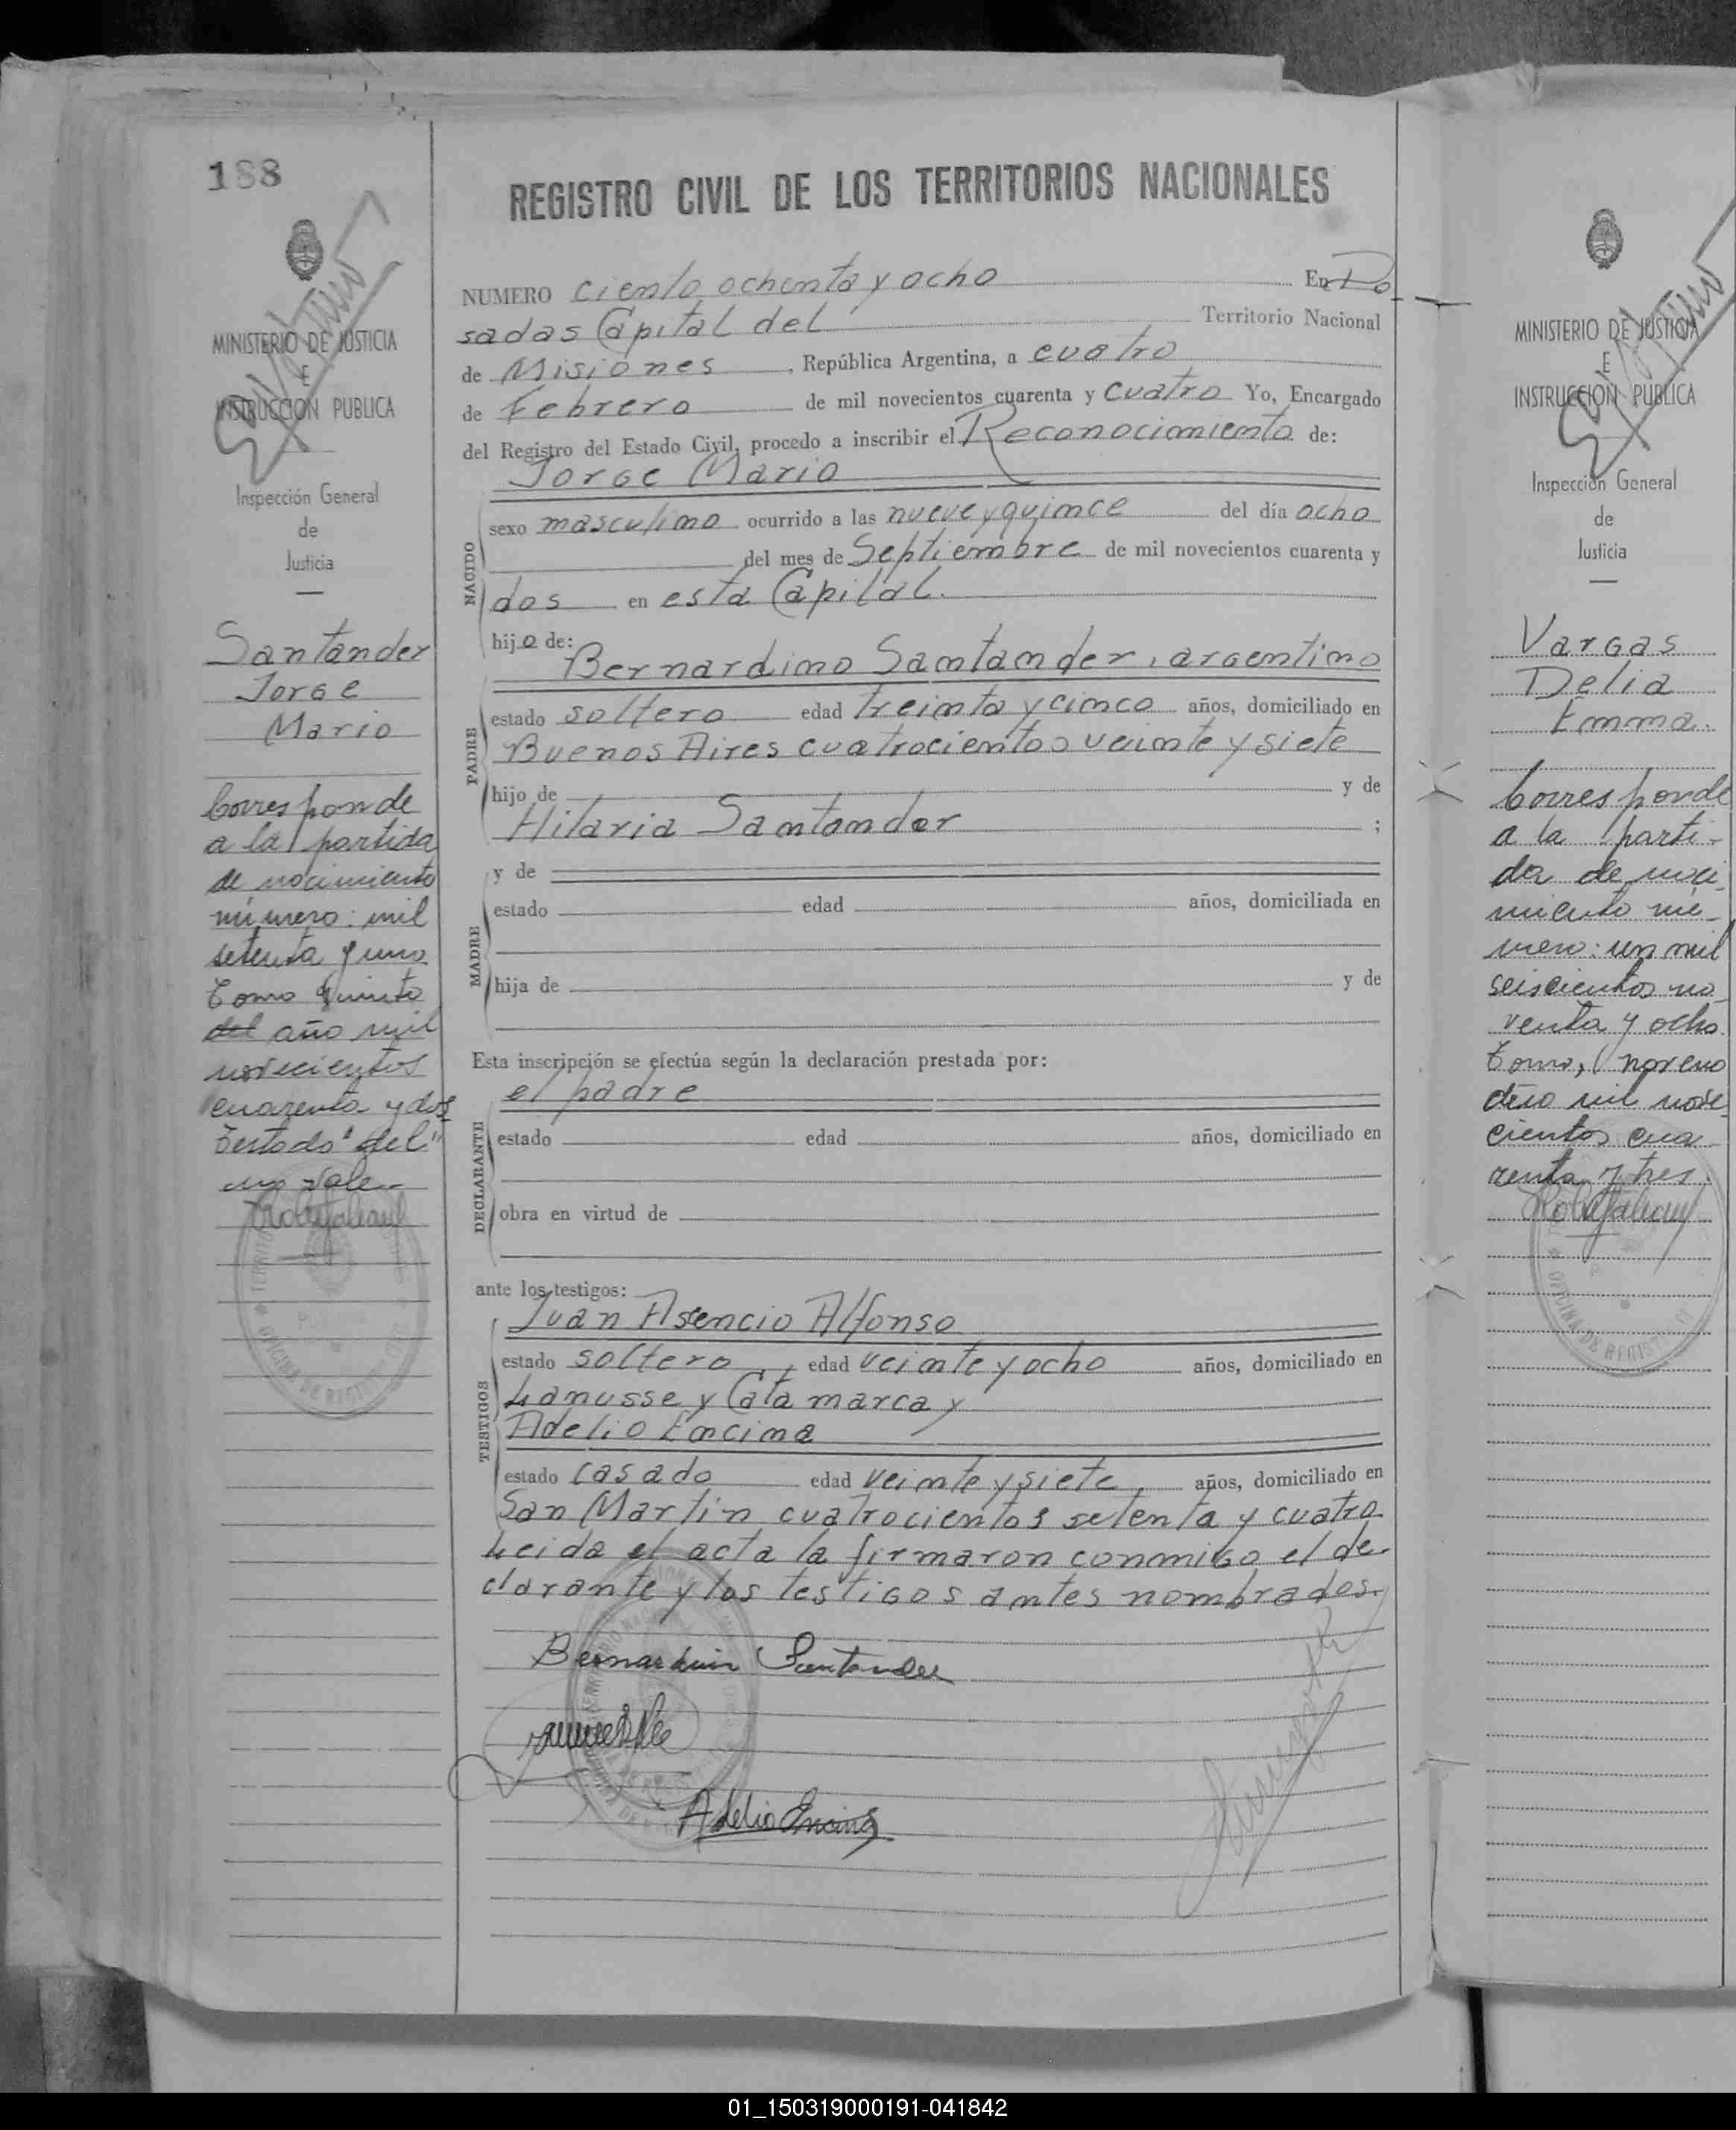 188
MINISTERIO DE JUSTICIA
E
INSTRUCCION PUBLICA
Inspección General
de
Justicia
Santander
Jorge
Mario
Corresponde
a la partida
de nacimiento
número: mil
setenta y uno
tomo quinto
del año mil
novecientos
cuarenta y dos
testado "del"
no vale
REGISTRO CIVIL DE LOS TERRITORIOS NACIONALES
NUMERO ciento ochenta y ocho En Po
sadas Capital del Territorio Nacional
de Misiones, República Argentina, a cuatro
de Febrero de mil novecientos cuarenta y cuatro Yo, Encargado
del Registro del Estado Civil, procedo a inscribir el Reconocimiento de:
Jorge Mario
NACIDO
sexo masculino ocurrido a las nueve y quince del día ocho
del mes de Septiembre de mil novecientos cuarenta y
dos en esta Capital.
hijo de:
Bernardino Santander, argentino
PADRE
estado soltero edad treinta y cinco años, domiciliado en
Buenos Aires cuatrocientos veinte y siete
hijo de y de
Hilaria Santander ;
y de
MADRE
estado edad años, domiciliada en
hija de y de
Esta inscripción se efectúa según la declaración prestada por:
el padre
DECLARANTE
estado edad años, domiciliado en
obra en virtud de
ante los testigos:
Juan Asencio Alfonso
TESTIGOS
estado soltero, edad veinte y ocho años, domiciliado en
Lanusse y Catamarca y
Adelio Encina
estado casado edad veinte y siete, años, domiciliado en
San Martín cuatrocientos setenta y cuatro
Leida el acta la firmaron conmigo el de-
clarante y los testigos antes nombrados.
Bernardino Santander
Adelio Encina
MINISTERIO DE JUSTICIA
E
INSTRUCCION PUBLICA
Inspección General
de
Justicia
Vargas
Delia
Emma.
Corresponde
a la parti-
da de naci-
miento nú-
mero: un mil
seiscientos no-
venta y ocho
tomo, noveno
año mil nove-
cientos cua-
renta y tres.
OFICINA DE REGIST
01_150319000191-041842